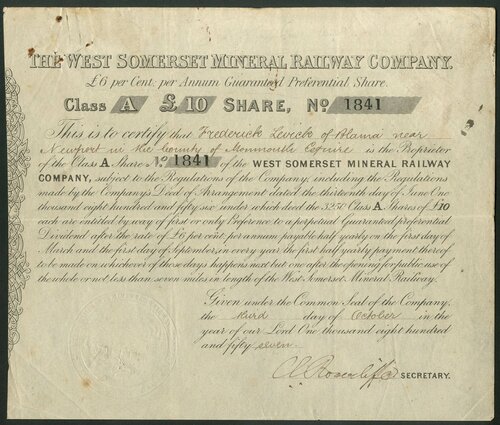 THE WEST SOMERSET MINERAL RAILWAY COMPANY.
£6 per Cent. per Annum Guaranteed Preferential Share.
Class A £10 SHARE, No 1841
This is to certify that Frederick Levick of Blaina near
Newport in the County of Monmouth Esquire is the Proprietor
of the Class A Share No 1841 of the WEST SOMERSET MINERAL RAILWAY
COMPANY, subject to the Regulations of the Company; including the Regulations
made by the Company's Deed of Arrangement dated the thirteenth day of June One
thousand eight hundred and fifty six: under which deed the 3250 Class A Shares of £10
each are entitled by way of first or only Preference to a perpetual Guaranteed preferential
Dividend after the rate of £6 per cent per annum payable half yearly on the first day of
March and the first day of September, in every year the first half yearly payment thereof
to be made on whichever of those days happens next but one after the opening for public use of
the whole or not less than seven miles in length of the West Somerset Mineral Railway.
Given under the Common Seal of the Company,
the third day of October in the
year of our Lord One thousand eight hundred
and fifty seven.
SECRETARY.